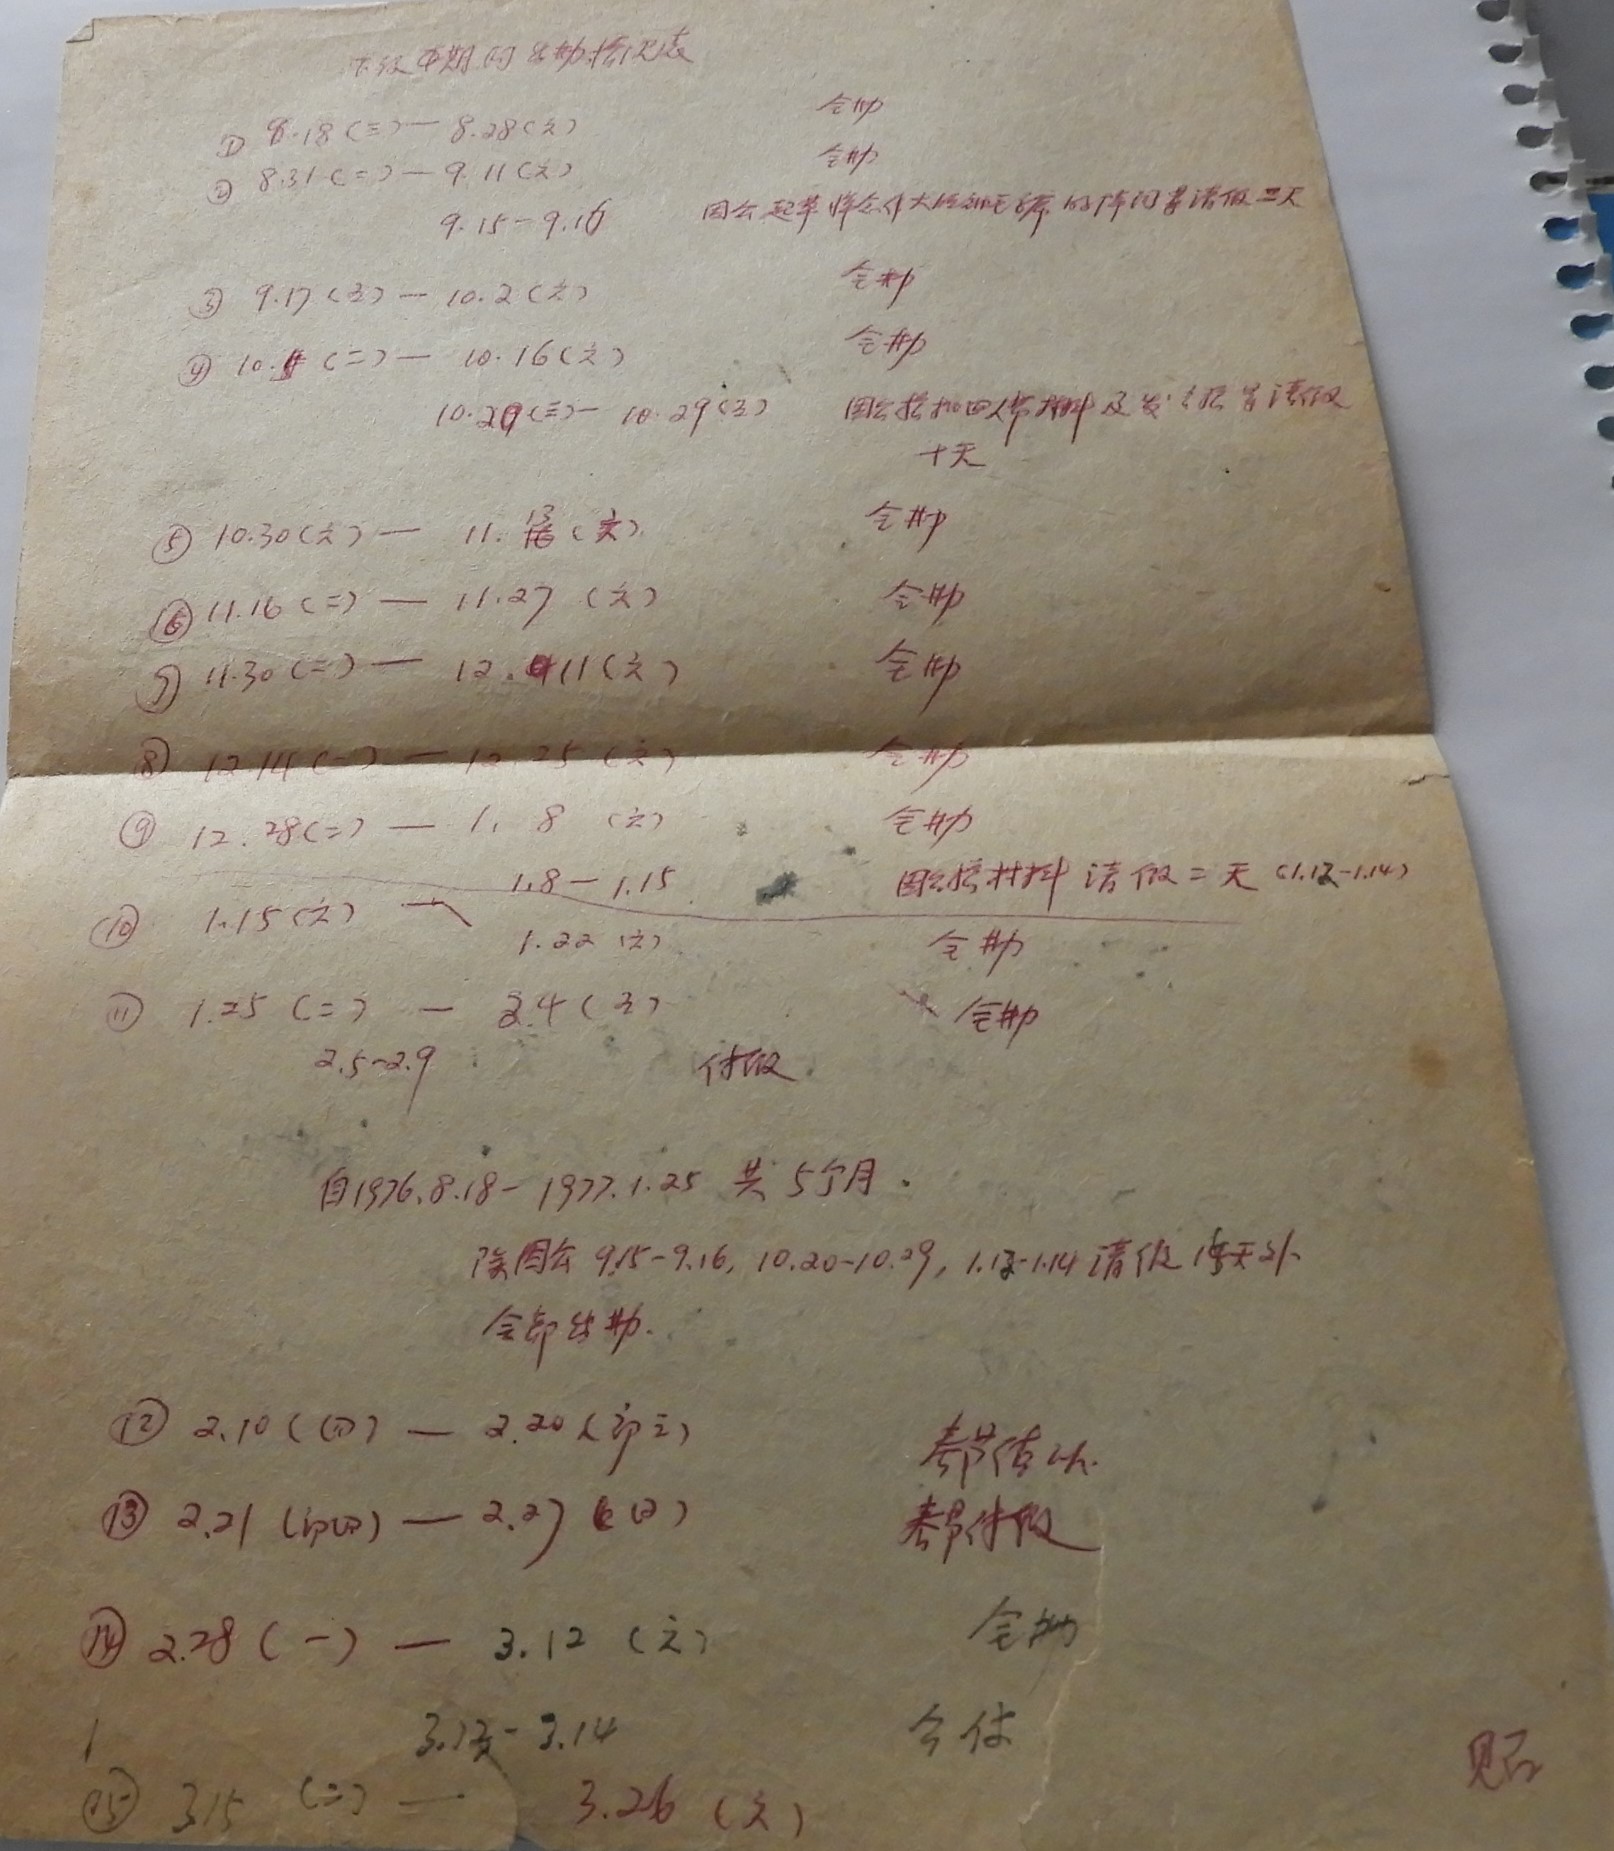 期间出勤情况表
① 8.18(三)— 8.28(六) 全勤
② 8.31(二)— 9.11(六) 全勤
9.15-9.16 因公起草 请假二天
③ 9.17(五)— 10.2(六) 全勤
④ 10. (二)— 10.16(六) 全勤
10.20(三)- 10.29(五) 因公 四人帮材料及发 请假
十天
⑤ 10.30(六)— 11.13(六) 全勤
⑥ 11.16(二)— 11.27(六) 全勤
⑦ 11.30(二)— 12.11(六) 全勤
⑧ 12.14(二)— 12.25(六) 全勤
⑨ 12.28(二)— 1.8(六) 全勤
1.8-1.15 因公搞材料请假二天(1.13-1.14)
⑩ 1.15(六)—
1.22(六) 全勤
⑪ 1.25(二)— 2.4(五) 全勤
2.5-2.9 休假
自1976.8.18-1977.1.25 共5个月.
除因公9.15-9.16, 10.20-10.29, 1.13-1.14请假 天外
全部出勤.
⑫ 2.10(四)— 2.20(初三) 春节
⑬ 2.21(初四)— 2.27(日) 春节休假
⑭ 2.28(一)— 3.12(六) 全勤
3.13-3.14 公休
⑮ 3.15(二)— 3.26(六)
见后